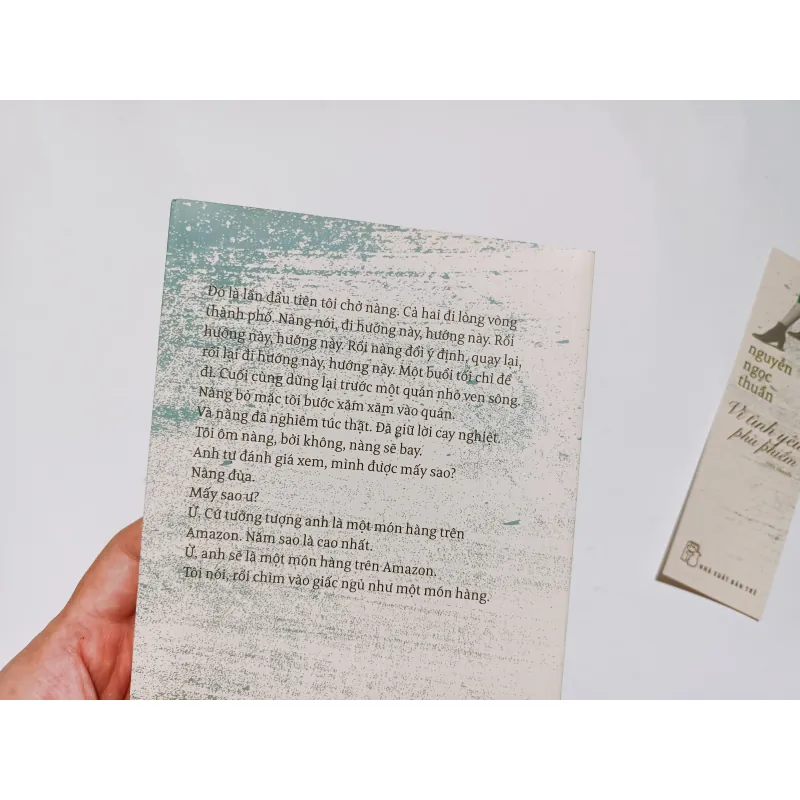 Đó là lần đầu tiên tôi chở nàng. Cả hai đi lòng vòng
thành phố. Nàng nói, đi hướng này, hướng này. Rồi
hướng này, hướng này. Rồi nàng đổi ý định, quay lại,
rồi lại đi hướng này, hướng này. Một buổi tối chỉ để
đi. Cuối cùng dừng lại trước một quán nhỏ ven sông.
Nàng bỏ mặc tôi bước xăm xăm vào quán.
Và nàng đã nghiêm túc thật. Đã giữ lời cay nghiệt.
Tôi ôm nàng, bởi không, nàng sẽ bay.
Anh tự đánh giá xem, mình được mấy sao?
Nàng đùa.
Mấy sao ư?
Ừ. Cứ tưởng tượng anh là một món hàng trên
Amazon. Năm sao là cao nhất.
Ừ, anh sẽ là một món hàng trên Amazon.
Tôi nói, rồi chìm vào giấc ngủ như một món hàng.
nguyễn
ngọc
thuần
Về tình yêu
phù phiếm
NHÀ XUẤT BẢN TRẺ